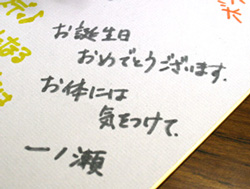 お誕生日
おめでとうございます.
お体には
気をつけて.
一ノ瀬